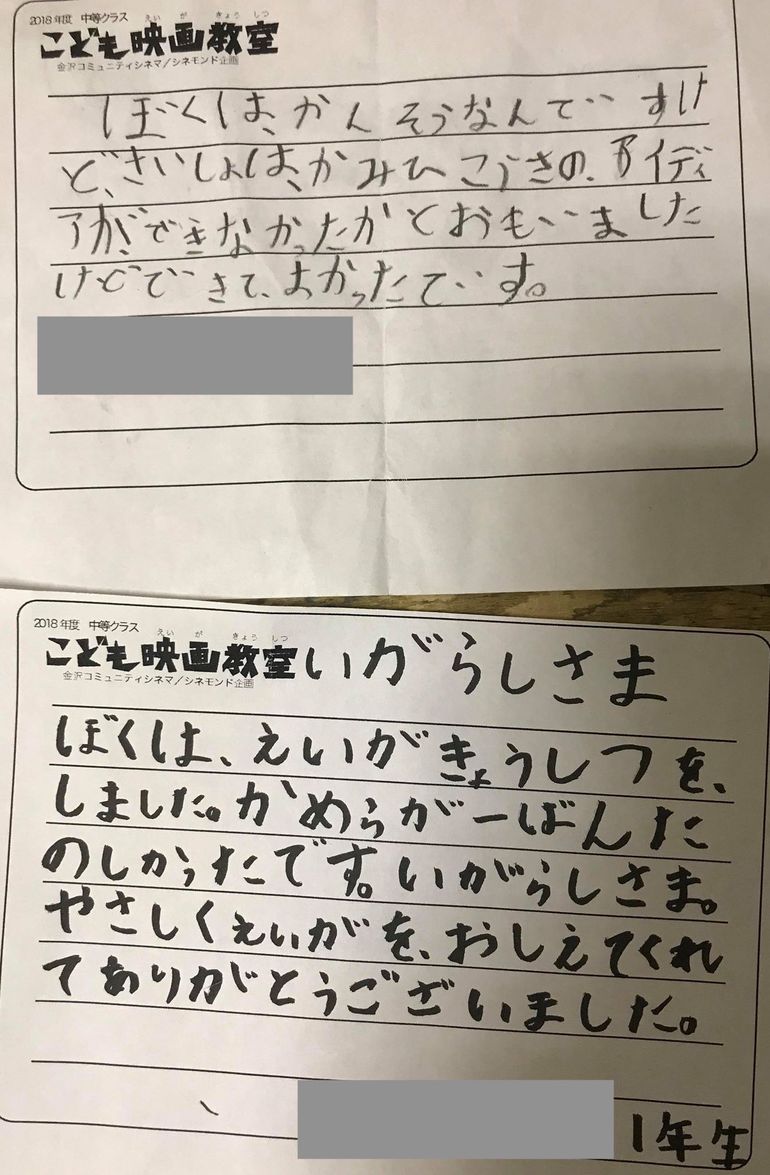 2018年度 中等クラス
えい が きょう しつ
こども映画教室
金沢コミュニティシネマ／シネモンド企画
ぼくは、かんそうなんですけ
ど、さいしょは、かみひこうきの、アイディ
アがでできなかったかとおもいました
けどできて、よかったです。
2018年度 中等クラス
えい が きょう しつ
こども映画教室 いがらしさま
金沢コミュニティシネマ／シネモンド企画
ぼくは、えいがきょうしつを、
しました。かめらがーばんた
のしかったです。いがらしさま。
やさしくえいがを、おしえてくれ
てありがとうございました。
1年生